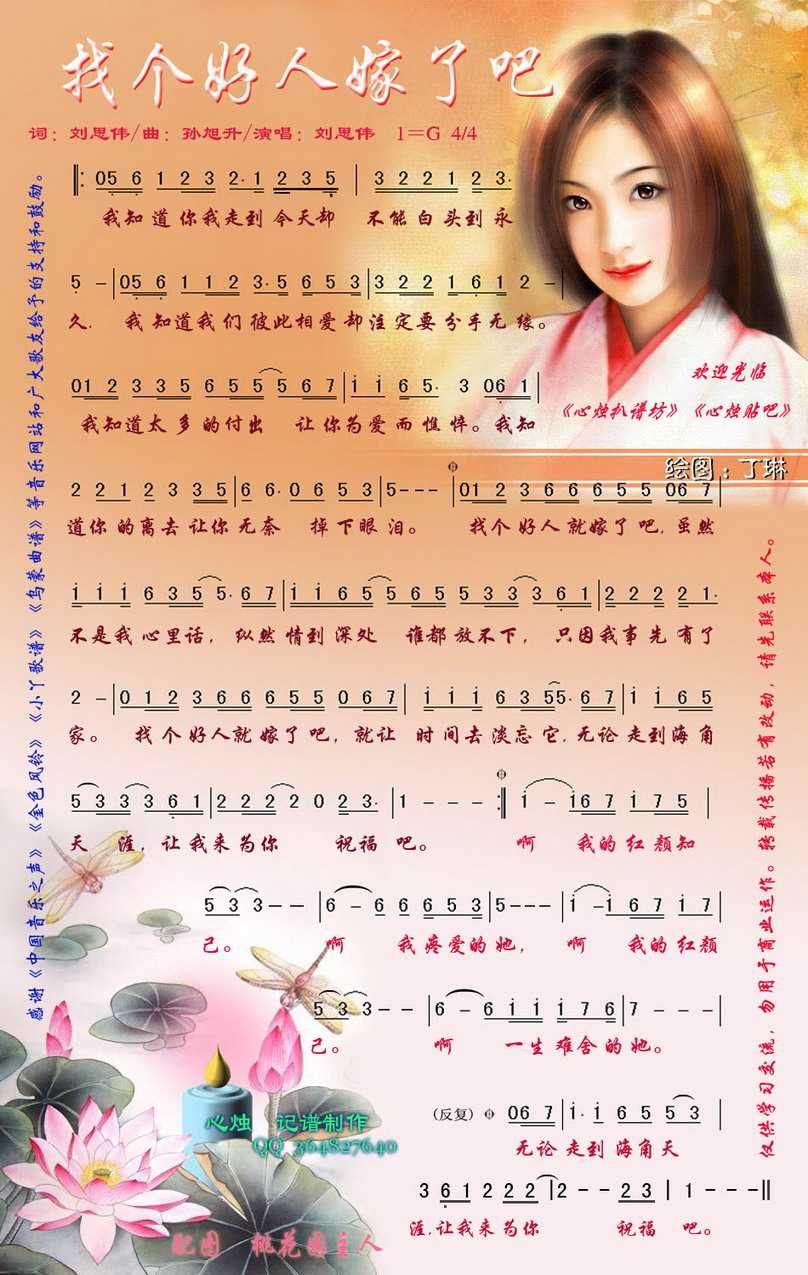 找个好人嫁了吧
词：刘思伟/曲：孙旭升/演唱：刘思伟 1=G 4/4
‖: 05 6 1 2 3 2· 1 2 3 5 | 3 2 2 1 2 3·
我知道你我走到今天却 不能白头到永
5 - |05 6 1 1 2 3·5 6 5 3|3 2 2 1 6 1 2 - |
久. 我知道我们彼此相爱却注定要分手无缘。
01 2 3 3 5 6 5 5 5 6 7 | i i 6 5· 3 06 1 |
我知道太多的付出 让你为爱而憔悴。我知
2 2 1 2 3 3 3 5 | 6 6·0 6 5 3 |5---|01 2 3 6 6 6 5 5 06 7 |
道你的离去让你无奈 掉下眼泪。 找个好人就嫁了吧,虽然
i i i 6 3 5 5·6 7 |i i i 6 5 6 5 5 3 3 3 6 1 |2 2 2 2 1·
不是我心里话，纵然情到深处 谁都放不下， 只因我事先有了
2 - |0 1 2 3 6 6 6 5 5 0 6 7 | i i i 6 3 55·6 7 | i i 6 5
家。 找个好人就嫁了吧，就让 时间去淡忘它,无论走到海角
5 3 3 3 6 1 |2 2 2 2 0 2 3· |1 - - - :‖ i - i6 7 i 7 5 |
天 涯，让我来为你 祝福 吧。 啊 我的红颜知
5 3 3-- |6 - 6 6 6 5 3 |5--- |i -i 6 7 i 7 |
己。 啊 我疼爱的她， 啊 我的红颜
5 3 3-- |6 - 6 i i i 7 6 |7 --- |
己。 啊 一生难舍的她。
(反复) 06 7 |i· i 6 5 5 3 |
无论走到海角天
3 6 1 2 2 2 2 |2 - - 2 3 | 1 ---‖
涯,让我来为你 祝福 吧。
欢迎光临
《心烛扒谱坊》《心烛贴吧》
绘图：丁琳
感谢《中国音乐之声》《金色风铃》《小丫歌谱》《鸟蒙曲谱》等音乐网站和广大歌友给予的支持和鼓励。
仅供学习交流，勿用于商业运作。转载传播若有改动，请先联系本人。
心烛 记谱制作
QQ 364827640
配图 桃花园主人